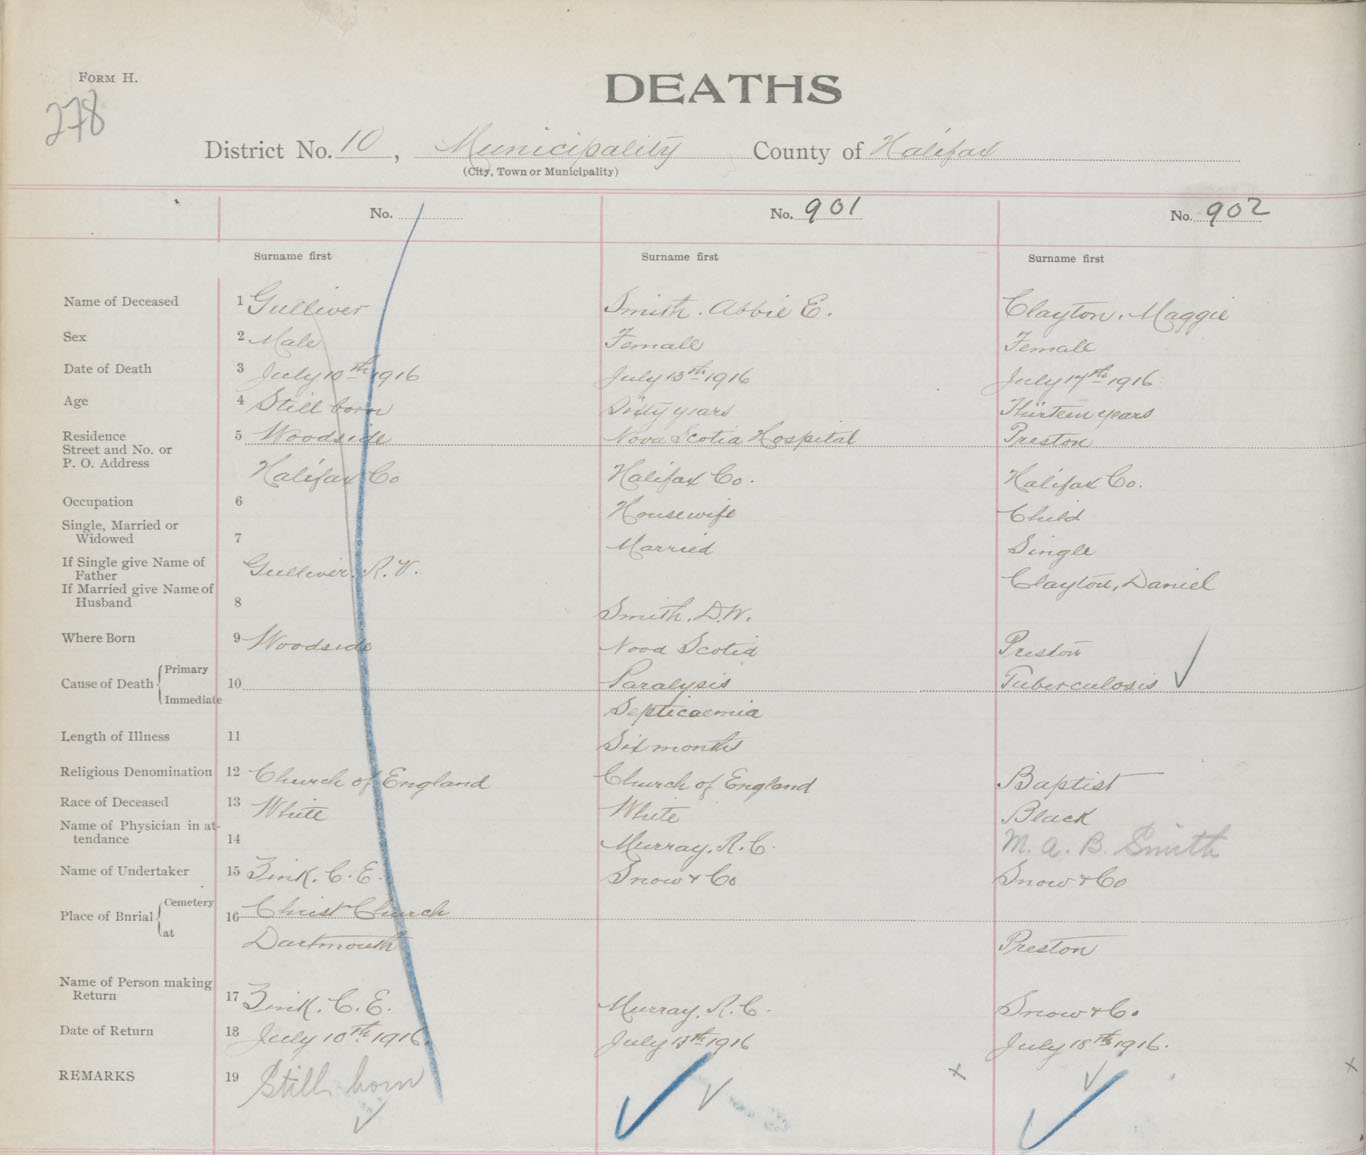 FORM H.
DEATHS
278
District No. 10, Municipality County of Halifax
(City, Town or Municipality)
No. No. 901 No. 902
Surname first Surname first Surname first
Name of Deceased 1 Gulliver Smith. Abbie E. Clayton, Maggie
Sex 2 Male Female Female
Date of Death 3 July 10th 1916 July 13th 1916 July 17th 1916
Age 4 Still born Sixty years Thirteen years
Residence 5 Woodside Nova Scotia Hospital Preston
Street and No. or
P. O. Address Halifax Co Halifax Co. Halifax Co.
Occupation 6 Housewife Child
Single, Married or
Widowed 7 Married Single
If Single give Name of
Father Gulliver, R. V. Clayton, Daniel
If Married give Name of
Husband 8 Smith, D.W.
Where Born 9 Woodside Nova Scotia Preston
Cause of Death Primary 10 Paralysis Tuberculosis
Immediate Septicaemia
Length of Illness 11 Six months
Religious Denomination 12 Church of England Church of England Baptist
Race of Deceased 13 White White Black
Name of Physician in at-
tendance 14 Murray, R. C. M. A. B. Smith
Name of Undertaker 15 Zink. C. E. Snow & Co Snow & Co
Place of Burial Cemetery 16 Christ Church
at Dartmouth Preston
Name of Person making
Return 17 Zink, C. E. Murray, R. C. Snow & Co.
Date of Return 18 July 10th 1916. July 13th 1916 July 18th 1916.
REMARKS 19 Still born